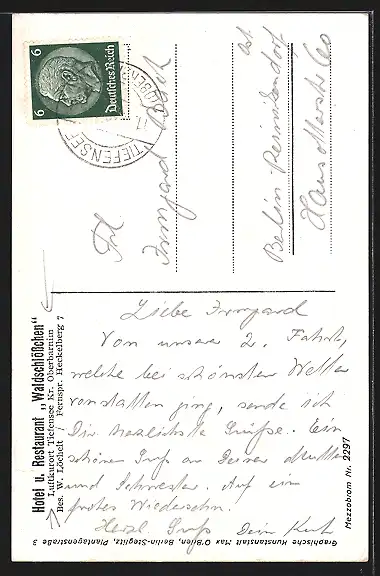 Hotel u. Restaurant „Waldschlößchen“
Luftkurort Tiefensee Kr. Oberbarnim
Bes. W. Löchelt / Fernspr. Heckelberg 7
Deutsches Reich
6 6
TIEFENSEE
Frl
Irmgard
Berlin-Reinickendorf
Ost
Liebe Irmgard
Von unserer 2. Fahrt,
welche bei schönsten Wetter
vonstatten ging, sende ich
Dir herzlichste Grüße. Ein
schönen Gruß an Deine Mutter
und Schwester. Auf ein
frohes Wiedersehn.
Herzl Gruß Dein Kurt
Mezzobrom Nr. 2297
Graphische Kunstanstalt Max O'Brien, Berlin-Steglitz, Plantagenstraße 3